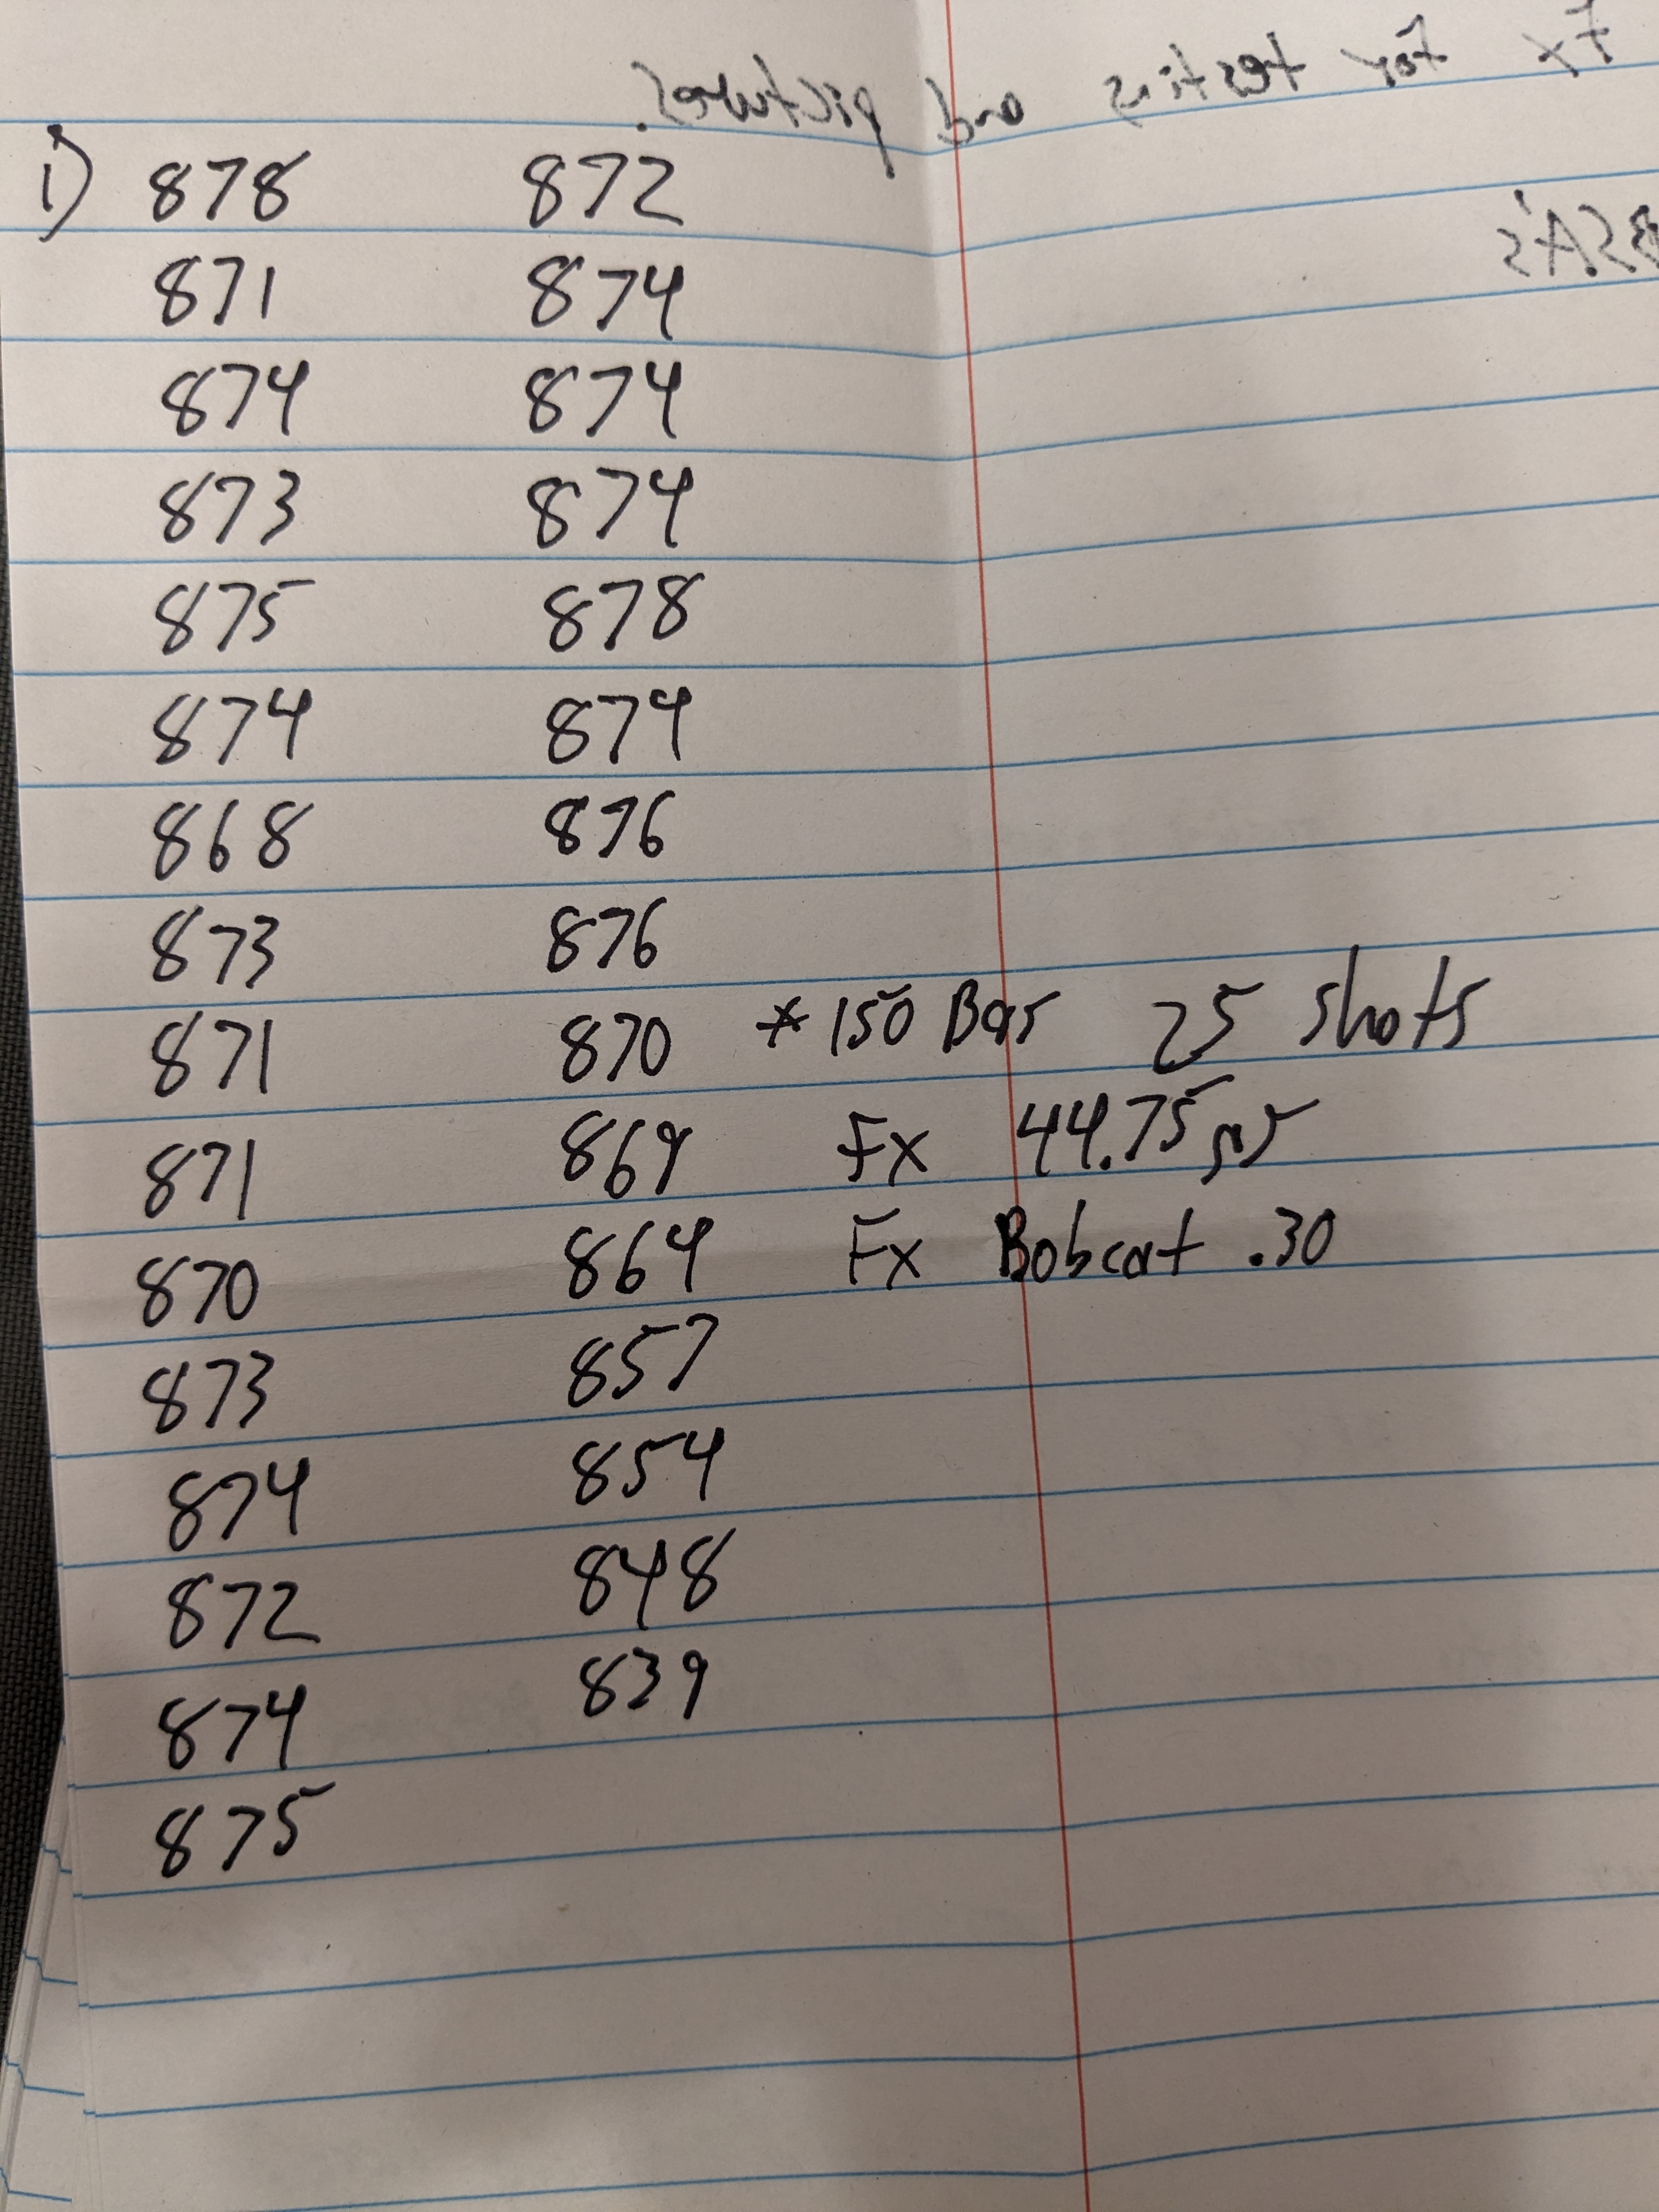 Fx for testing and pictures.
BSA's
1) 878 872
871 874
874 874
873 874
875 878
874 874
868 876
873 876
871 870 * 150 Bar 25 shots
871 869 Fx 44.75 gr
870 864 Fx Bobcat .30
873 857
874 854
872 848
874 839
875